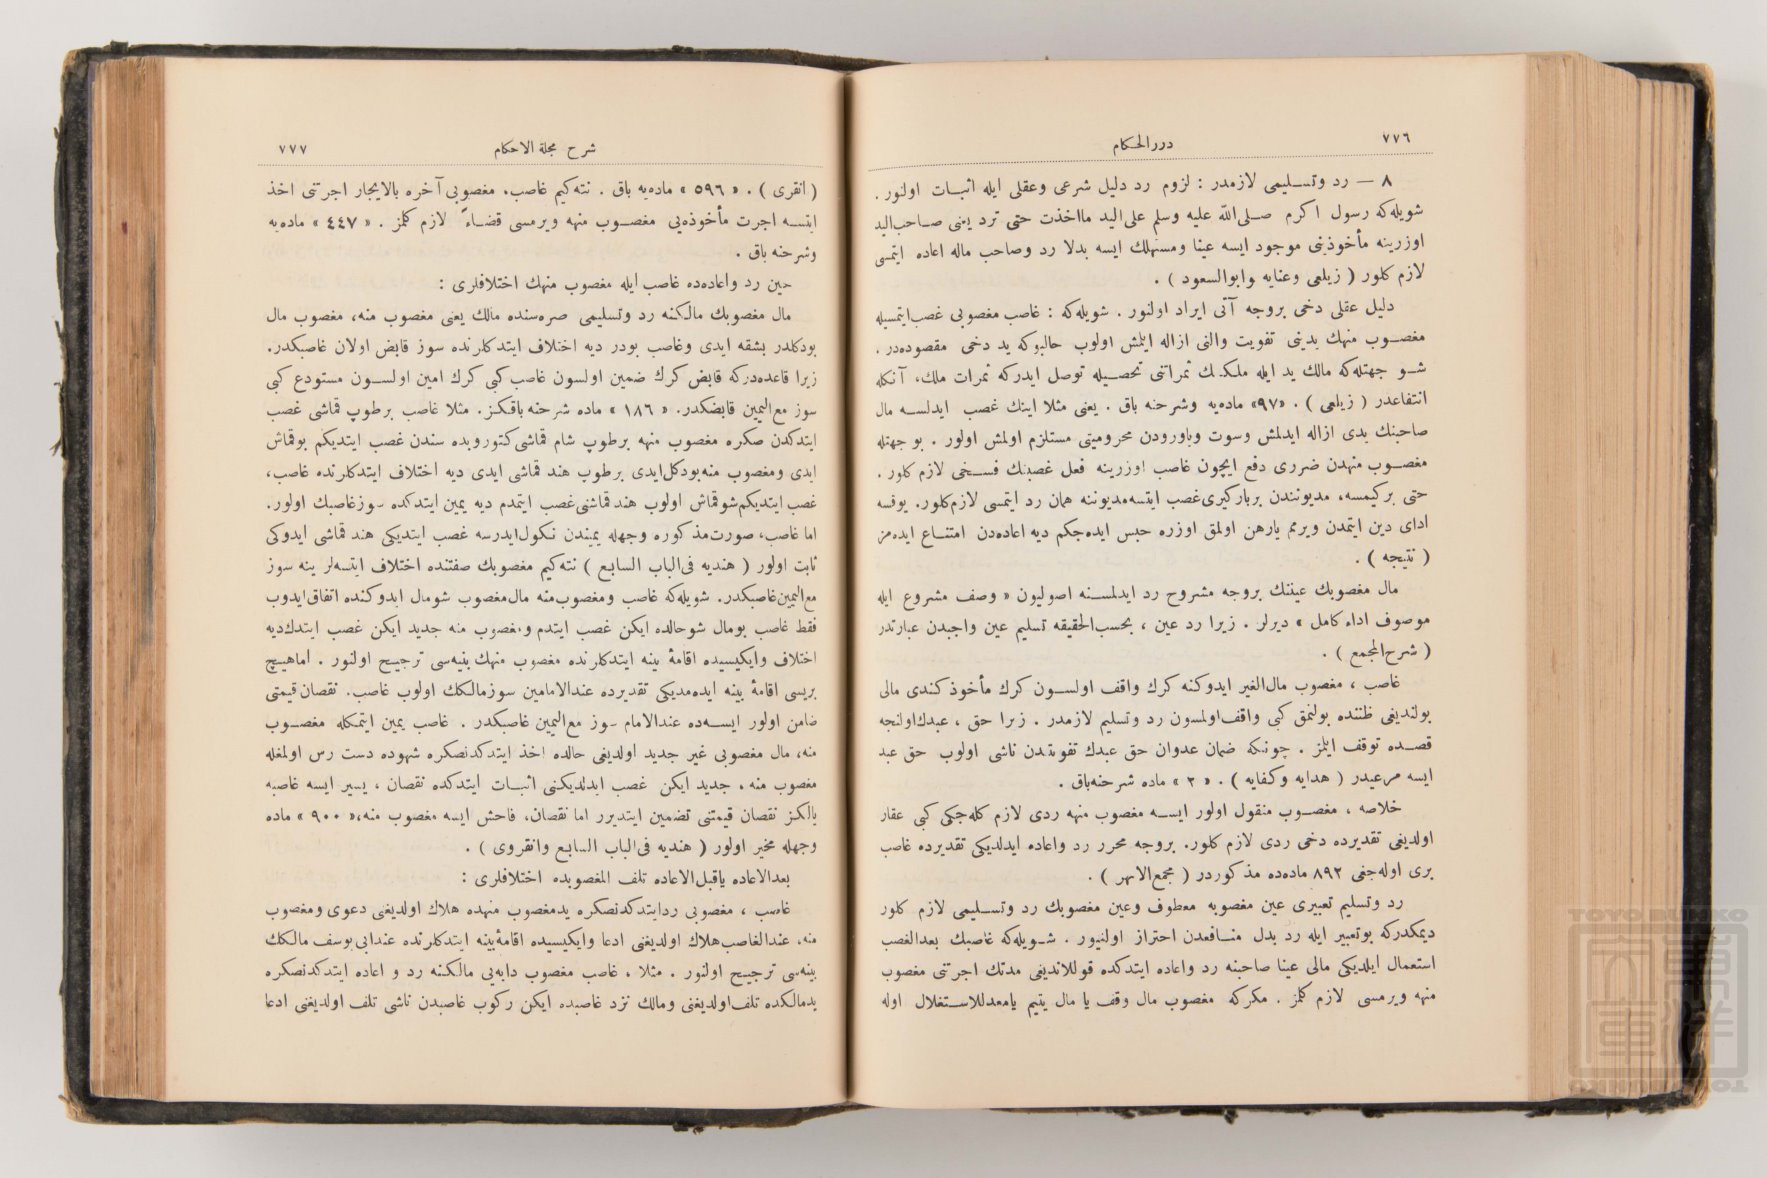 ٧٧٦
دررالحكام
٨ — رد وتسليمى لازمدر : لزوم رد دليل شرعى وعقلى ايله اثبات اولنور .
شويله‌كه رسول اكرم صلى‌الله عليه وسلم على‌اليد مااخذت حتى ترد يعنى صاحب‌اليد
اوزرينه مأخوذينى موجود ايسه عيناً ومستهلك ايسه بدلا رد وصاحب ماله اعاده ايتمسى
لازم كلور ( زيلعى وعنايه وابوالسعود ) .
دليل عقلى دخى بروجه آتى ايراد اولنور . شويله‌كه : غاصب مغصوبى غصب‌ايتمسيله
مغصوب منهك يدينى تفويت والنى ازاله ايلمش اولوب حالبوكه يد دخى مقصوده‌در .
شو جهتله‌كه مالك يد ايله ملكنك ثمراتنى تحصيله توصل ايدركه ثمرات ملك، آنكله
انتفاعدر ( زيلعى ) . «٩٧» ماده‌يه وشرحنه باق . يعنى مثلا ايتك غصب ايدلسه مال
صاحبنك يدى ازاله ايدلمش وسوت وياورودن محروميتى مستلزم اولمش اولور . بو جهتله
مغصوب منهدن ضررى دفع ايچون غاصب اوزرينه فعل غصبنك فسخى لازم كلور .
حتى بركيمسه، مديونندن برباركيرى‌غصب ايتسه‌مديوننه همان رد ايتمسى لازم‌كلور. يوقسه
اداى دين ايتمدن ويرمم يارهن اولمق اوزره حبس ايده‌جكم ديه اعاده‌دن امتناع ايده‌مز
( نتيجه ) .
مال مغصوبك عيننك بروجه مشروح رد ايدلمسنه اصوليون « وصف مشروع ايله
موصوف اداء كامل » ديرلر . زيرا رد عين ، بحسب‌الحقيقه تسليم عين واجبدن عبارتدر
( شرح‌المجمع ) .
غاصب ، مغصوب مال‌الغير ايدوكنه كرك واقف اولسون كرك مأخوذ كندى مالى
بولنديغى ظننده بولنمق كبى واقف‌اولمسون رد وتسليم لازمدر . زيرا حق ، عبدك‌اولنجه
قصده توقف ايلمز . چونكه ضمان عدوان حق عبدك تفويتندن ناشى اولوب حق عبد
ايسه مرعيدر ( هدايه وكفايه ) . « ٢ » ماده شرحنه‌باق .
خلاصه ، مغصوب منقول اولور ايسه مغصوب منهه ردى لازم كله‌جكى كبى عقار
اولديغى تقديرده دخى ردى لازم كلور. بروجه محرر رد واعاده ايدلديكى تقديرده غاصب
برى اوله‌جغى ٨٩٢ ماده‌ده مذكوردر ( مجمع‌الانهر ) .
رد وتسليم تعبيرى عين مغصوبه معطوف وعين مغصوبك رد وتسليمى لازم كلور
ديمكدركه بوتعبير ايله رد بدل منافعدن احتراز اولنيور . شويله‌كه غاصبك بعدالغصب
استعمال ايلديكى مالى عينا صاحبنه رد واعاده ايتدكده قوللانديغى مدتك اجرتنى مغصوب
منهه ويرمسى لازم كلمز . مكركه مغصوب مال وقف يا مال يتيم يامعدللاستغلال اوله
شرح مجلة الاحكام
٧٧٧
( انقرى ) . « ٥٩٦ » ماده‌يه باق . نته‌كيم غاصب، مغصوبى آخره بالايجار اجرتنى اخذ
ايتسه اجرت مأخوذه‌يى مغصوب منهه ويرمسى قضاءً لازم كلمز . « ٤٤٧ » ماده‌يه
وشرحنه باق .
حين رد واعاده‌ده غاصب ايله مغصوب منهك اختلافلرى :
مال مغصوبك مالكنه رد وتسليمى صره‌سنده مالك يعنى مغصوب منه، مغصوب مال
بودكلدر بشقه ايدى وغاصب بودر ديه اختلاف ايتدكلرنده سوز قابض اولان غاصبكدر.
زيرا قاعده‌دركه قابض كرك ضمين اولسون غاصب كبى كرك امين اولسون مستودع كبى
سوز مع‌اليمين قابضكدر. « ١٨٦ » ماده شرحنه باقكز. مثلا غاصب برطوپ قماشى غصب
ايتدكدن صكره مغصوب منهه برطوپ شام قماشى‌كتوروبده سندن غصب ايتديكم بوقماش
ايدى ومغصوب منه‌بودكل‌ايدى برطوپ هند قماشى ايدى ديه اختلاف ايتدكلرنده غاصب،
غصب ايتديكم‌شوقماش اولوب هندقماشنى‌غصب ايتمدم ديه يمين ايتدكده سوزغاصبك اولور.
اما غاصب، صورت‌مذكوره وجهله يميندن نكول‌ايدرسه غصب ايتديكى هند قماشى ايدوكى
ثابت اولور ( هنديه فى‌الباب السابع ) نته‌كيم مغصوبك صفتنده اختلاف ايتسه‌لر ينه سوز
مع‌اليمين‌غاصبكدر. شويله‌كه غاصب ومغصوب‌منه مال‌مغصوب شومال ايدوكنده اتفاق‌ايدوب
فقط غاصب بومال شوحالده ايكن غصب ايتدم ومغصوب منه جديد ايكن غصب ايتدك‌ديه
اختلاف وايكيسيده اقامهٔ بينه ايتدكلرنده مغصوب منهك بينه‌سى ترجيح اولنور . اماهيچ
بريسى اقامهٔ بينه ايده‌مديكى تقديرده عندالامامين سوزمالكك اولوب غاصب، نقصان‌قيمتى
ضامن اولور ايسه‌ده عندالامام سوز مع‌اليمين غاصبكدر . غاصب يمين ايتمكله مغصوب
منه، مال مغصوبى غير جديد اولديغى حالده اخذ ايتدكدنصكره شهوده دست رس اولمغله
مغصوب منه ، جديد ايكن غصب ايدلديكنى اثبات ايتدكده نقصان ، يسير ايسه غاصبه
يالكز نقصان قيمتنى تضمين ايتديرر اما نقصان، فاحش ايسه مغصوب منه،« ٩٠٠ » ماده
وجهله مخير اولور ( هنديه فى‌الباب السابع وانقروى ) .
بعدالاعاده ياقبل‌الاعاده تلف المغصوبده اختلافلرى :
غاصب ، مغصوبى ردايتدكدنصكره يدمغصوب منهده هلاك اولديغى دعوى ومغصوب
منه، عندالغاصب‌هلاك اولديغنى ادعا وايكيسيده اقامهٔ‌بينه ايتدكلرنده عندابى‌يوسف مالكك
بينه‌سى ترجيح اولنور . مثلا ، غاصب مغصوب دابه‌يى مالكنه رد و اعاده ايتدكدنصكره
يدمالكده تلف‌اولديغنى ومالك نزد غاصبده ايكن ركوب غاصبدن ناشى تلف اولديغنى ادعا
TOYO BUNKO